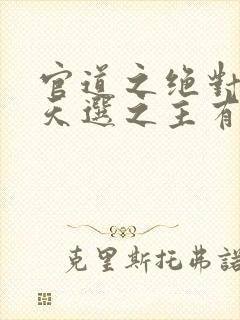 官道之绝對
天選之王有
克里斯托弗諾